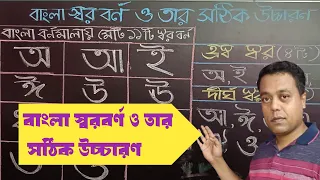 বাংলা স্বর বর্ন ও তার সঠিক উচ্চারণ
বাংলা বর্নমালায় মোট ১১টি স্বর বর্ন
অ আ ই
ঈ উ ঊ
হ্রস্ব স্বর (৪টি)
অ, ই,
দীর্ঘ স্বর
আ, ঈ,
বাংলা স্বরবর্ণ ও তার
সঠিক উচ্চারণ